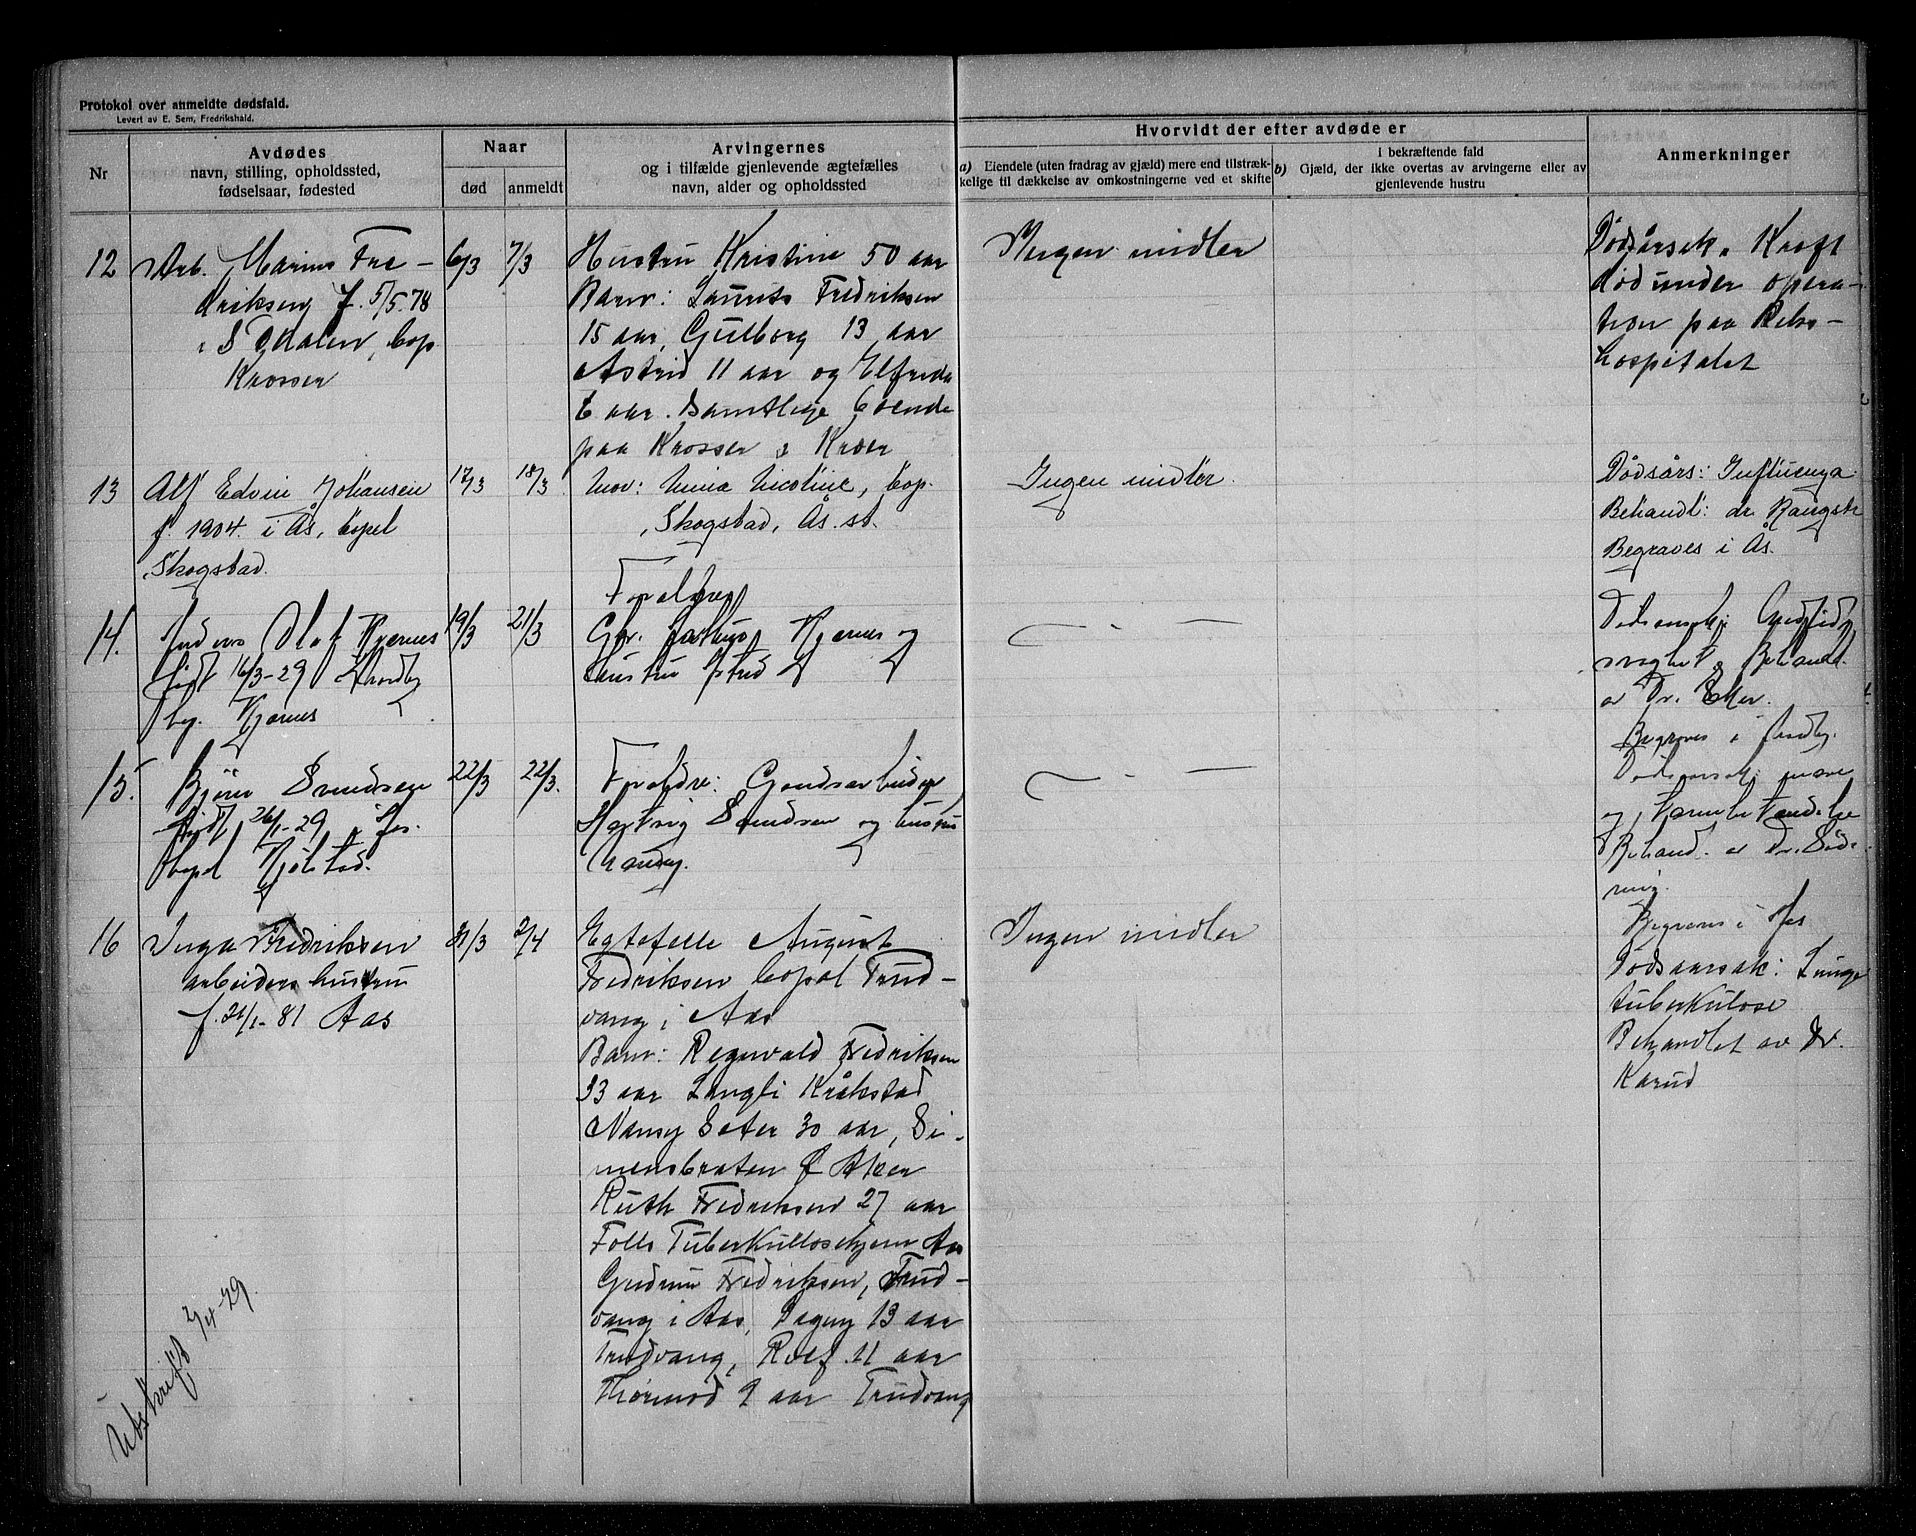 Protokol over anmeldte dødsfald.
Levert av E. Sem, Fredrikshald.
Nr
Avdødes
navn, stilling, opholdssted,
fødselsaar, fødested
Naar
død
anmeldt
Arvingernes
og i tilfælde gjenlevende ægtefælles
navn, alder og opholdssted
Hvorvidt der efter avdøde er
a) Eiendele (uten fradrag av gjæld) mere end tilstræk-
kelige til dækkelse av omkostningerne ved et skifte
I bekræftende fald
b) Gjæld, der ikke overtas av arvingerne eller av
gjenlevende hustru
Anmerkninger
12
Arb. Marius Fre-
driksen f. 5/5.78
i Ødalen, bop
Krosser
6/3
7/3
Hustru Kristine 50 aar
Barn: Laurits Fredriksen
15 aar, Gulborg 13 aar
Astrid 11 aar og Elfrida
6 aar. Samtlige boende
paa Krosser i Kroer
Ingen midler
Dødsårsak. Kræft
død under opera-
tion paa Riks-
hospitalet
13
Alf Edvin Johansen
f. 1904. i Ås, bopel
Skogstad.
17/3
18/3
Mor: Nicoline, bop.
Skogstad, Ås. st.
Ingen midler.
Dødsårs: Influenza
Behandl: dr.
Begraves i Ås.
14.
Anders Olaf Kjærnes
født 16/3-29 i Nordby
bop. Kjærnes
19/3
21/3
Foreldre
Gbr. Kjærnes og
hustru
— " —
Dødsaarsak:
svaghet. Behandl.
av Dr.
Begraves i Nordby.
15.
Bjørn Svendsen
født 26/1-29 i Aas.
bopel Kjølstad.
22/3
22/3.
Foreldre: Gaardsarbeider
Hartvig Svendsen og hustru
— " —
Dødsaarsak: mave
og tarmbetændelse
Behand. av Dr. Sød-
ring.
Begraves i Aas
16
Inga Fredriksen
arbeiders hustru
f. 21/1-81 Aas
31/3
2/4
Egtefelle August
Fredriksen bopæl Trud-
vang i Aas
Barn: Ragnvald Fredriksen
33 aar Langli Kråkstad
Nansy Sæter 30 aar, Si-
mensbraten Ø Aker
Ruth Fredriksen 27 aar
Follo Tuberkulloschjem Aas
Gudrun Fredriksen, Trud-
vang i Aas, Dagny 13 aar
Trudvang, Rolf 11 aar
Thormod 9 aar Trudvang
Ingen midler
Dødsaarsak: Lunge
tuberkulose
Behandlet av Dr.
Karud
Utskrift 2/4-29.